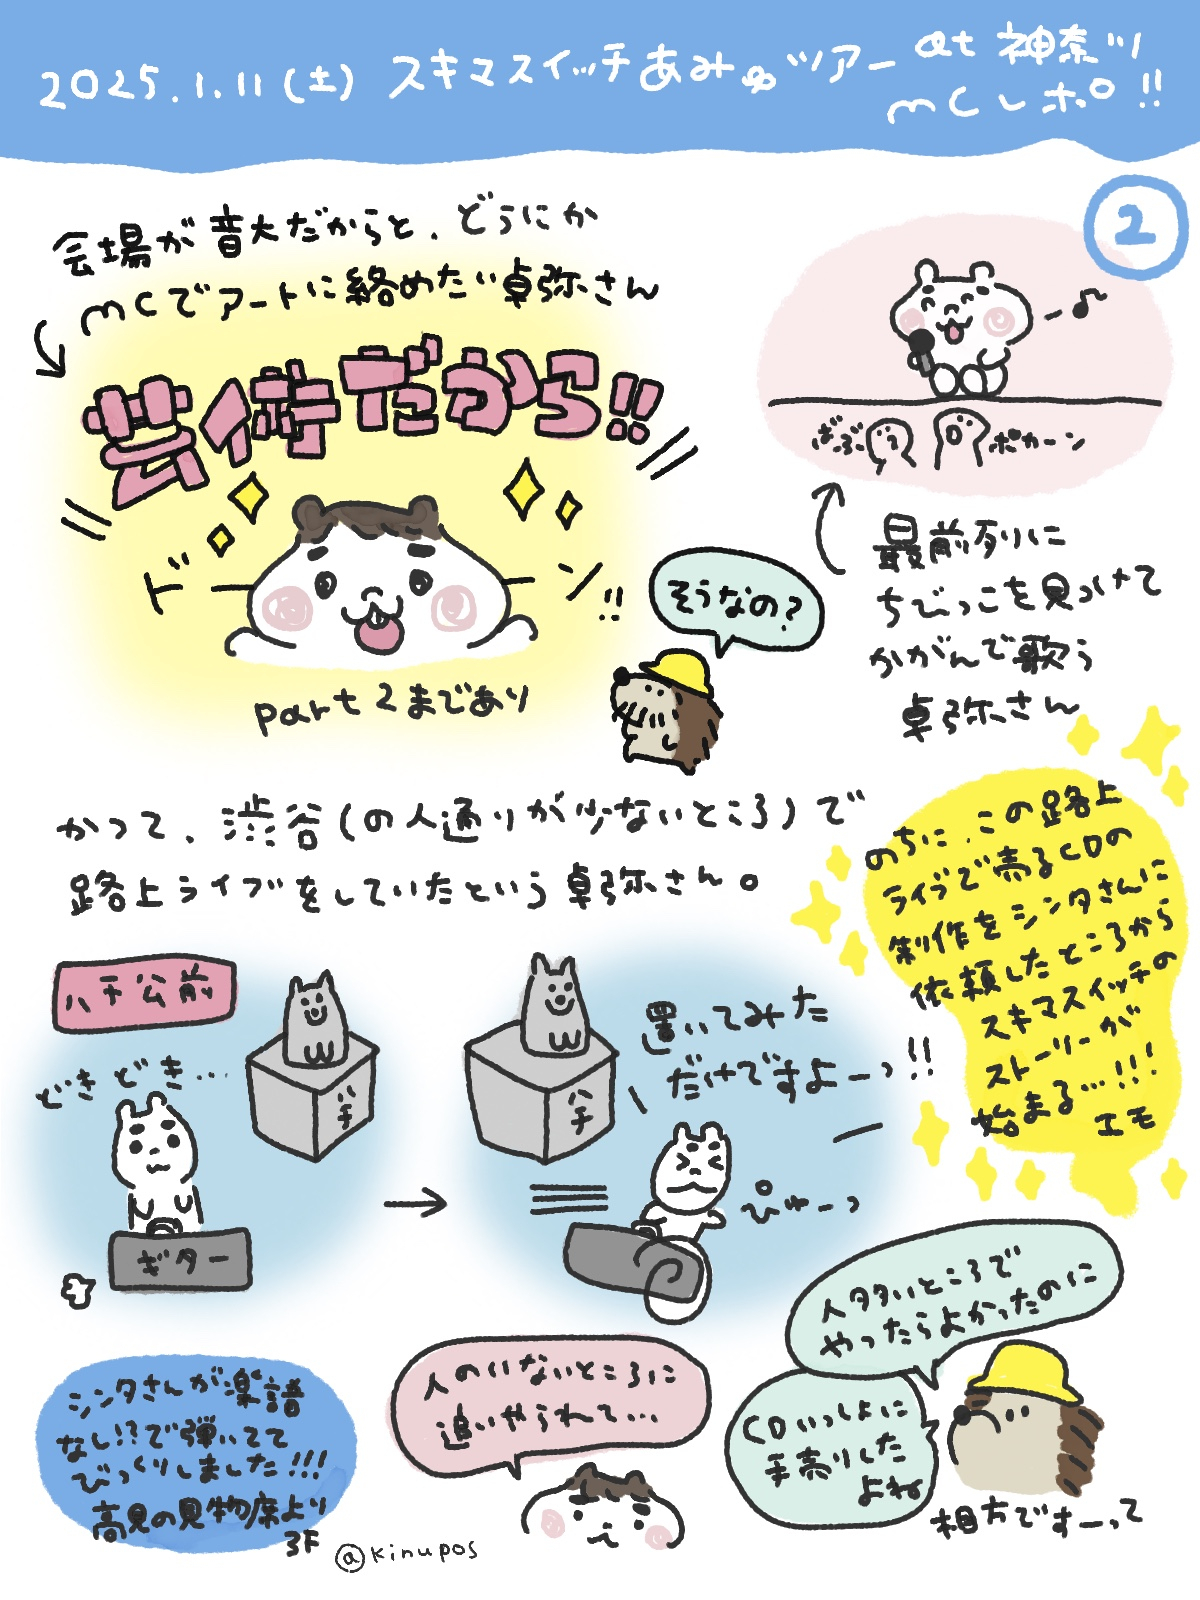 2025.1.11(土) スキマスイッチあみゅツアー at 神奈川
MCレポ!!
2
会場が音大だからと、どうにか
MCでアートに絡めたい卓弥さん
芸術だから!!
ドーン!!
part2まであり
そうなの?
ぎょろ
ポカーン
最前列に
ちびっこを見つけて
かがんで歌う
卓弥さん
かつて、渋谷(の人通りが少ないところ)で
路上ライブをしていたという卓弥さん。
のちに、この路上
ライブで売るCDの
制作をシンタさんに
依頼したところから
スキマスイッチの
ストーリーが
始まる…!!!
エモ
ハチ公前
どきどき…
ハチ
ギター
ハチ
置いてみた
だけですよーっ!!
ぴゅーっ
シンタさんが楽譜
なし!?で弾いてて
びっくりしました!!!
高見の見物席より
3F
人のいないところに
追いやられて…
人多いところで
やったらよかったのに
CDいっしょに
手売りした
よね
相方ですーって
@kinupos